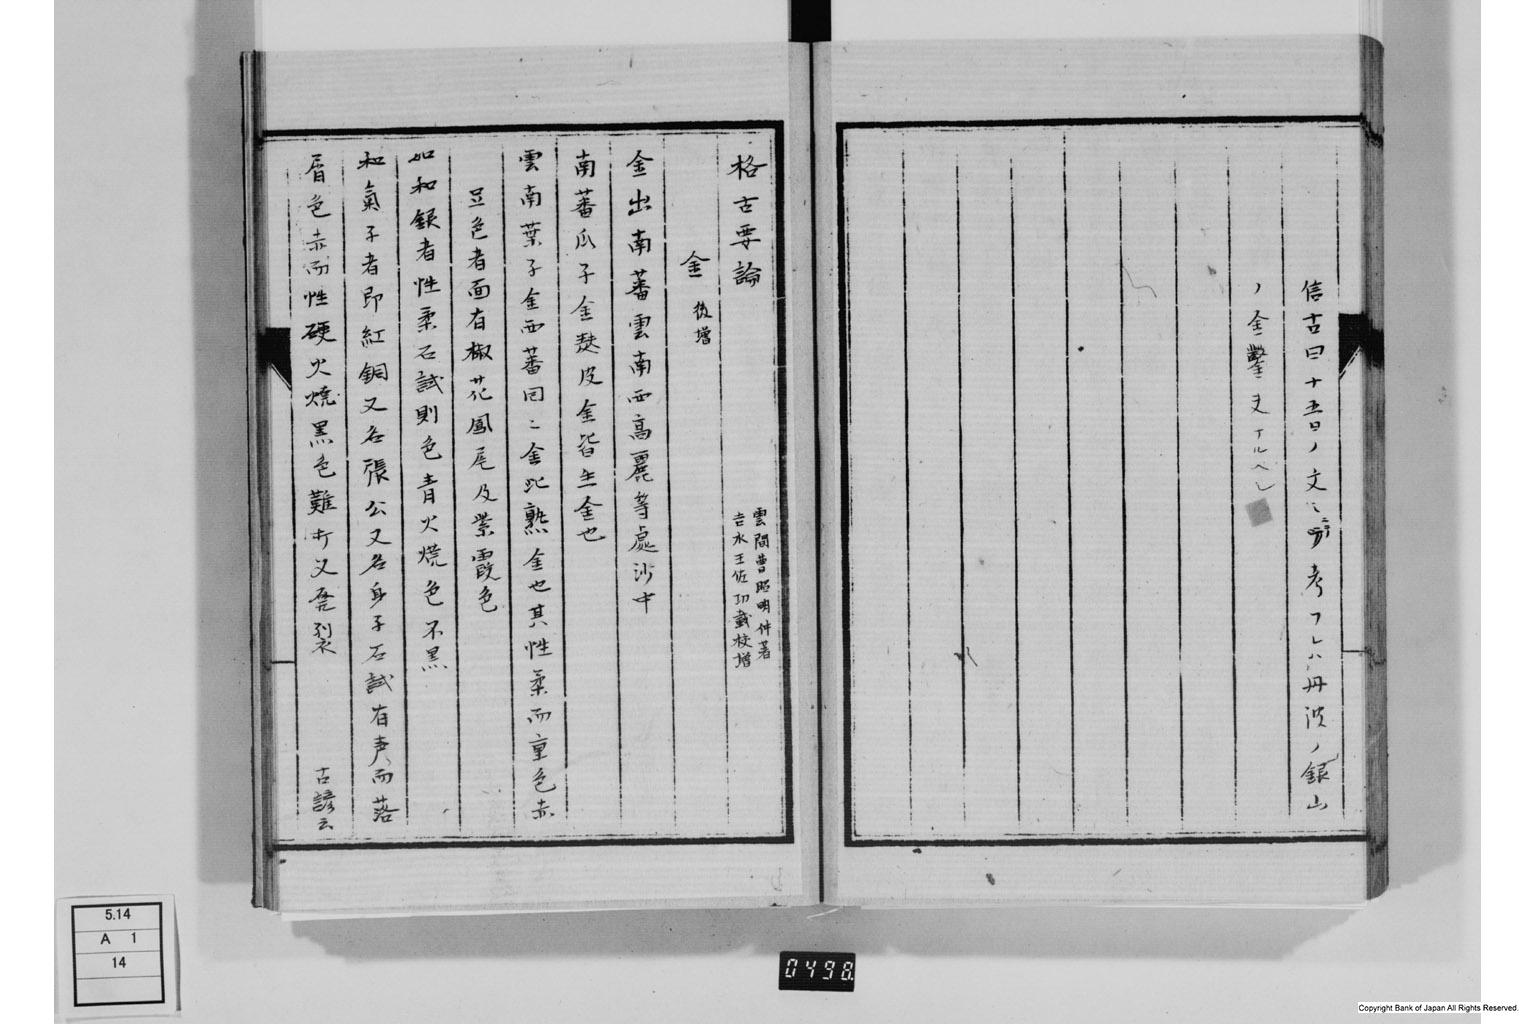 信古曰十五日ノ文ニ考フレハ丹波ノ銀山
ノ金鑿夫ナルベシ
格古要論
雲間曹昭明仲著
吉水王佐功載校增
金 後增
金出南蕃雲南西高麗等處沙中
南蕃瓜子金麩皮金皆生金也
雲南葉子金西蕃回ニ金此熟金也其性柔而重色赤
豆色者面有椒花鳳尾及紫霞色
如和銀者性柔石試則色青火燒色不黑
和氣子者即紅銅又名張公又名身子石試有声而落
屑色赤而性硬火燒黑色難打又裂
古諺云
5.14
A 1
14
0498
Copyright Bank of Japan All Rights Reserved.